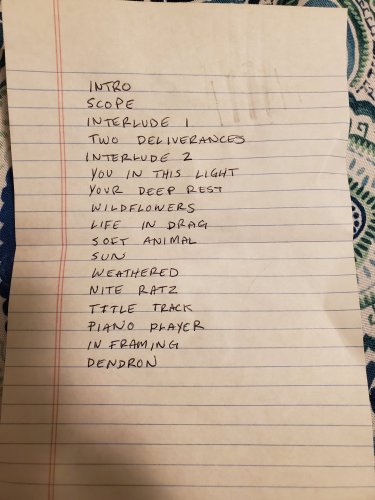 INTRO
SCOPE
INTERLUDE 1
TWO DELIVERANCES
INTERLUDE 2
YOU IN THIS LIGHT
YOUR DEEP REST
WILDFLOWERS
LIFE IN DRAG
SOFT ANIMAL
SUN
WEATHERED
NITE RATZ
TITLE TRACK
PIANO PLAYER
IN FRAMING
DENDRON